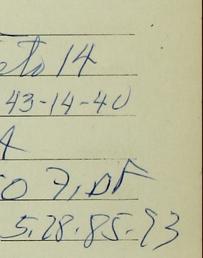 eto 14
43-14-40
A
co 7, DF
5.28.85.93